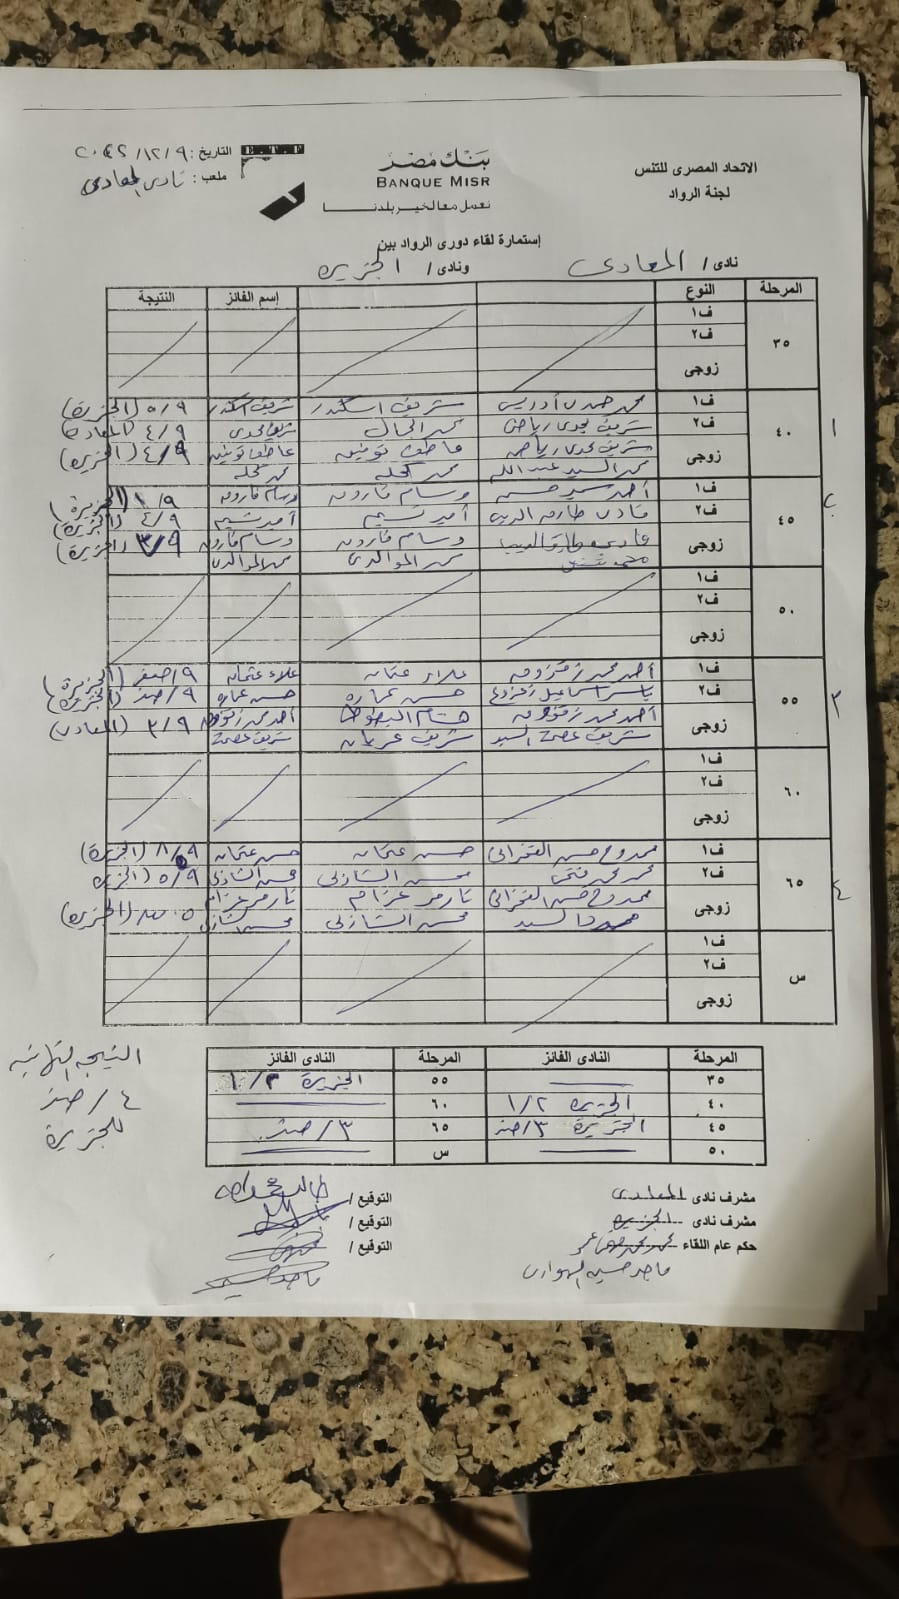 الاتحاد المصرى للتنس
لجنة الرواد
بنك مصر
BANQUE MISR
نعمل معا لخير بلدنا
E.T.F
التاريخ : ٩ /١٢/
ملعب : نادى المعادى
إستمارة لقاء دورى الرواد بين
نادى / المعادى ونادى / الجزيرة
المرحلة النوع إسم الفائز النتيجة
٣٥ ف١
ف٢
زوجى
١ ٤٠ ف١ شريف اسكندر شريف اسكندر ٥/٩ (الجزيرة)
ف٢ شريف مجدى رياض محمد الجمال شريف مجدى ٤/٩ (المعادى)
زوجى شريف مجدى رياض عاطف توفيق عاطف توفيق ٤/٩ (الجزيرة)
محمد السيد عبد الله محمد كحله محمد كحله
٢ ٤٥ ف١ أحمد سيد حسن وسام فاروق وسام فاروق ١/٩ (الجزيرة)
ف٢ فادى طارق الديب أمير نسيم أمير نسيم ٤/٩ (الجزيرة)
زوجى وسام فاروق وسام فاروق ٣/٩ (الجزيرة)
٥٠ ف١
ف٢
زوجى
٣ ٥٥ ف١ أحمد محمد زقزوق علاء عثمان علاء عثمان ٩/صفر (الجزيرة)
ف٢ ياسر اسماعيل حسن عماره حسن عماره ٩/صفر (الجزيرة)
زوجى أحمد محمد زقزوق هشام أحمد محمد زقزوق ٣/٩ (المعادى)
شريف عصمت السيد شريف شريف عصمت
٦٠ ف١
ف٢
زوجى
٤ ٦٥ ف١ ممدوح حسن حسن عثمان حسن عثمان ٨/٩ (الجزيرة)
ف٢ محمد محمد فتحى محسن الشاذلى محسن الشاذلى ٥/٩ (الجزيرة
زوجى ممدوح حسن تامر عزام تامر عزام (الجزيرة)
محمود السيد محسن الشاذلى محسن الشاذلى
س ف١
ف٢
زوجى
المرحلة النادى الفائز المرحلة النادى الفائز
٣٥ ٥٥ الجزيرة ١/٢
٤٠ الجزيرة ١/٢ ٦٠
٤٥ الجزيرة ٣/صفر ٦٥ ٣/صفر
٥٠ س
النتيجه النهائيه
٤/صفر
للجزيرة
مشرف نادى المعادى التوقيع /
مشرف نادى الجزيرة التوقيع /
حكم عام اللقاء التوقيع /
ماجد حسين الهوارى